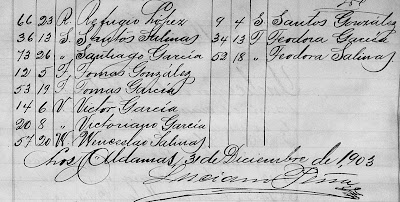 66 23 R. Refugio López 9 4 S Santos González
36 13 S. Santos Salinas 34 13 T Teodora García
73 26 " Santiago García 52 18 " Teodora Salinas
12 5 T Tomas González
53 19 T Tomas García
14 6 V Victor García
20 8 " Victoriano García
57 20 W. Wenceslao Salinas
Los Aldamas, 31 Diciembre de 1903
Luciano Peña